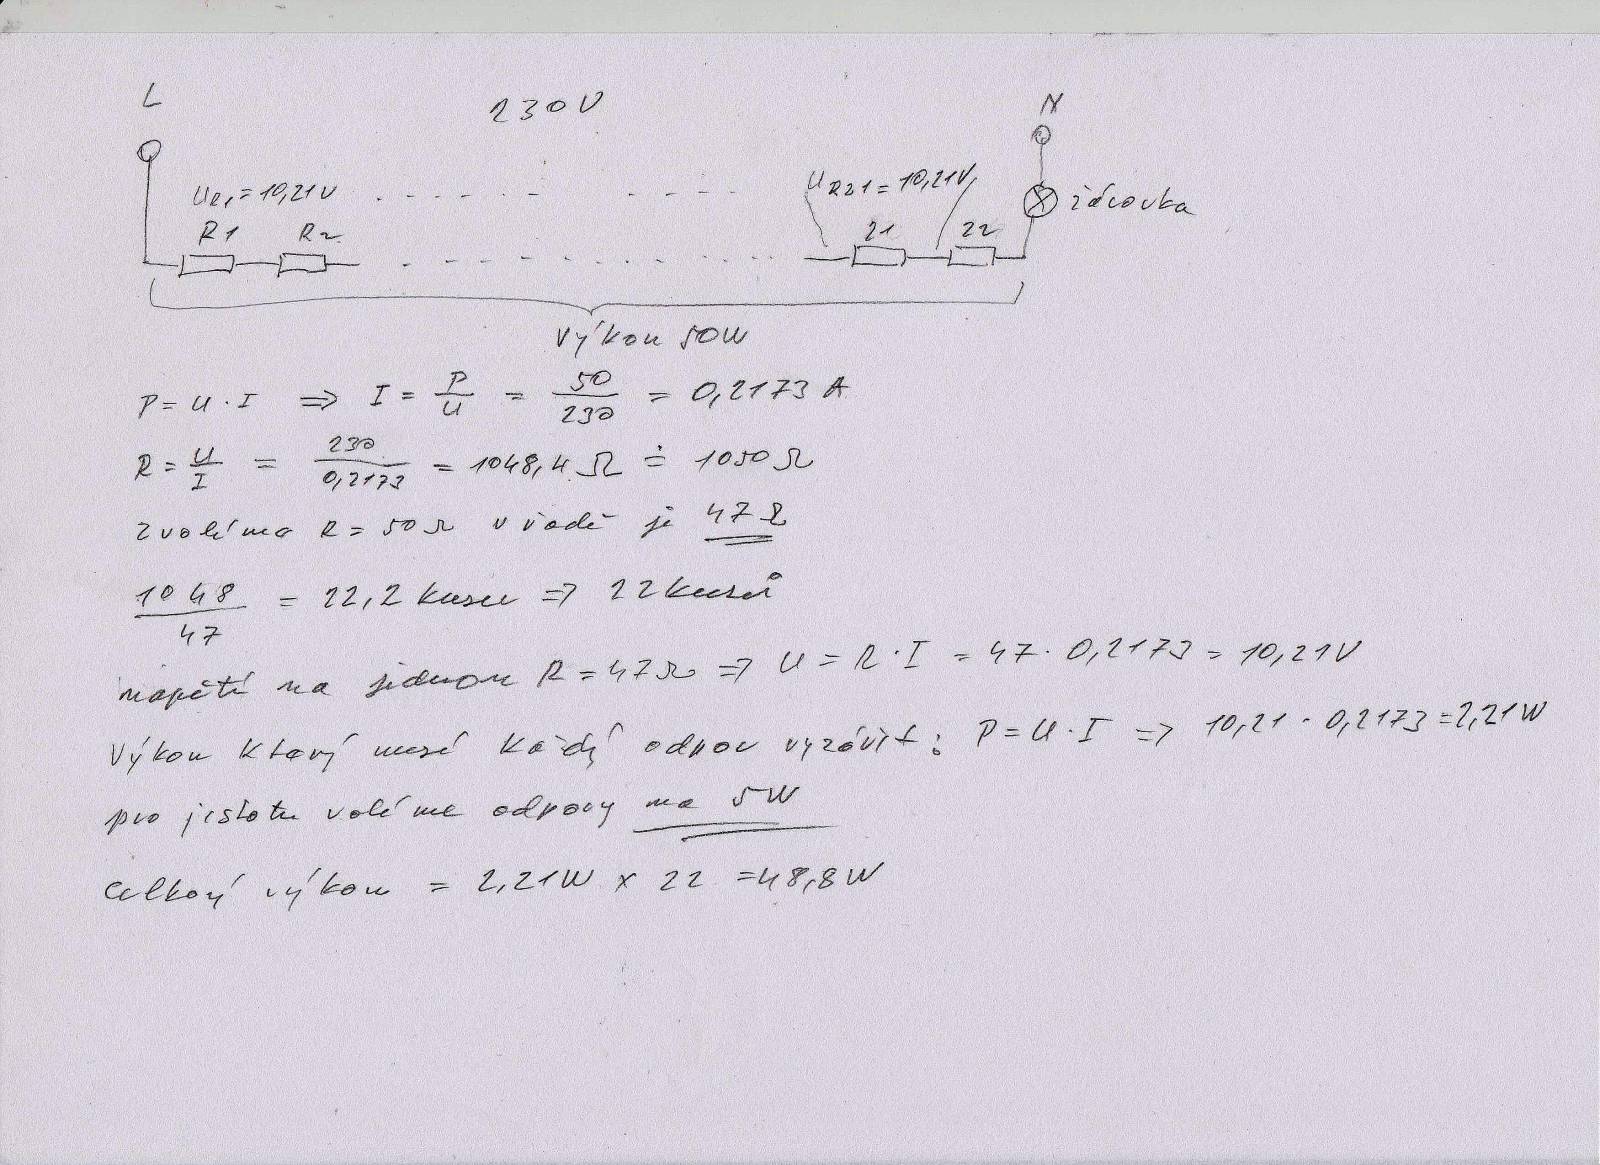 L 230V N
UR1=10,21V UR21=10,21V žárovka
R1 R2 21 22
Výkon 50W
P = U · I => I = P/U = 50/230 = 0,2173 A
R = U/I = 230/0,2173 = 1048,4 Ω ≐ 1050 Ω
zvolíma R = 50Ω v řadě je 47Ω
1048/47 = 22,2 kusu => 22 kusů
napětí na jednom R = 47Ω => U = R · I = 47 · 0,2173 = 10,21V
Výkon který musí každý odpor vyzářit: P = U · I => 10,21 · 0,2173 = 2,21W
pro jistotu volíme odpory na 5W
celkový výkon = 2,21W x 22 = 48,8W